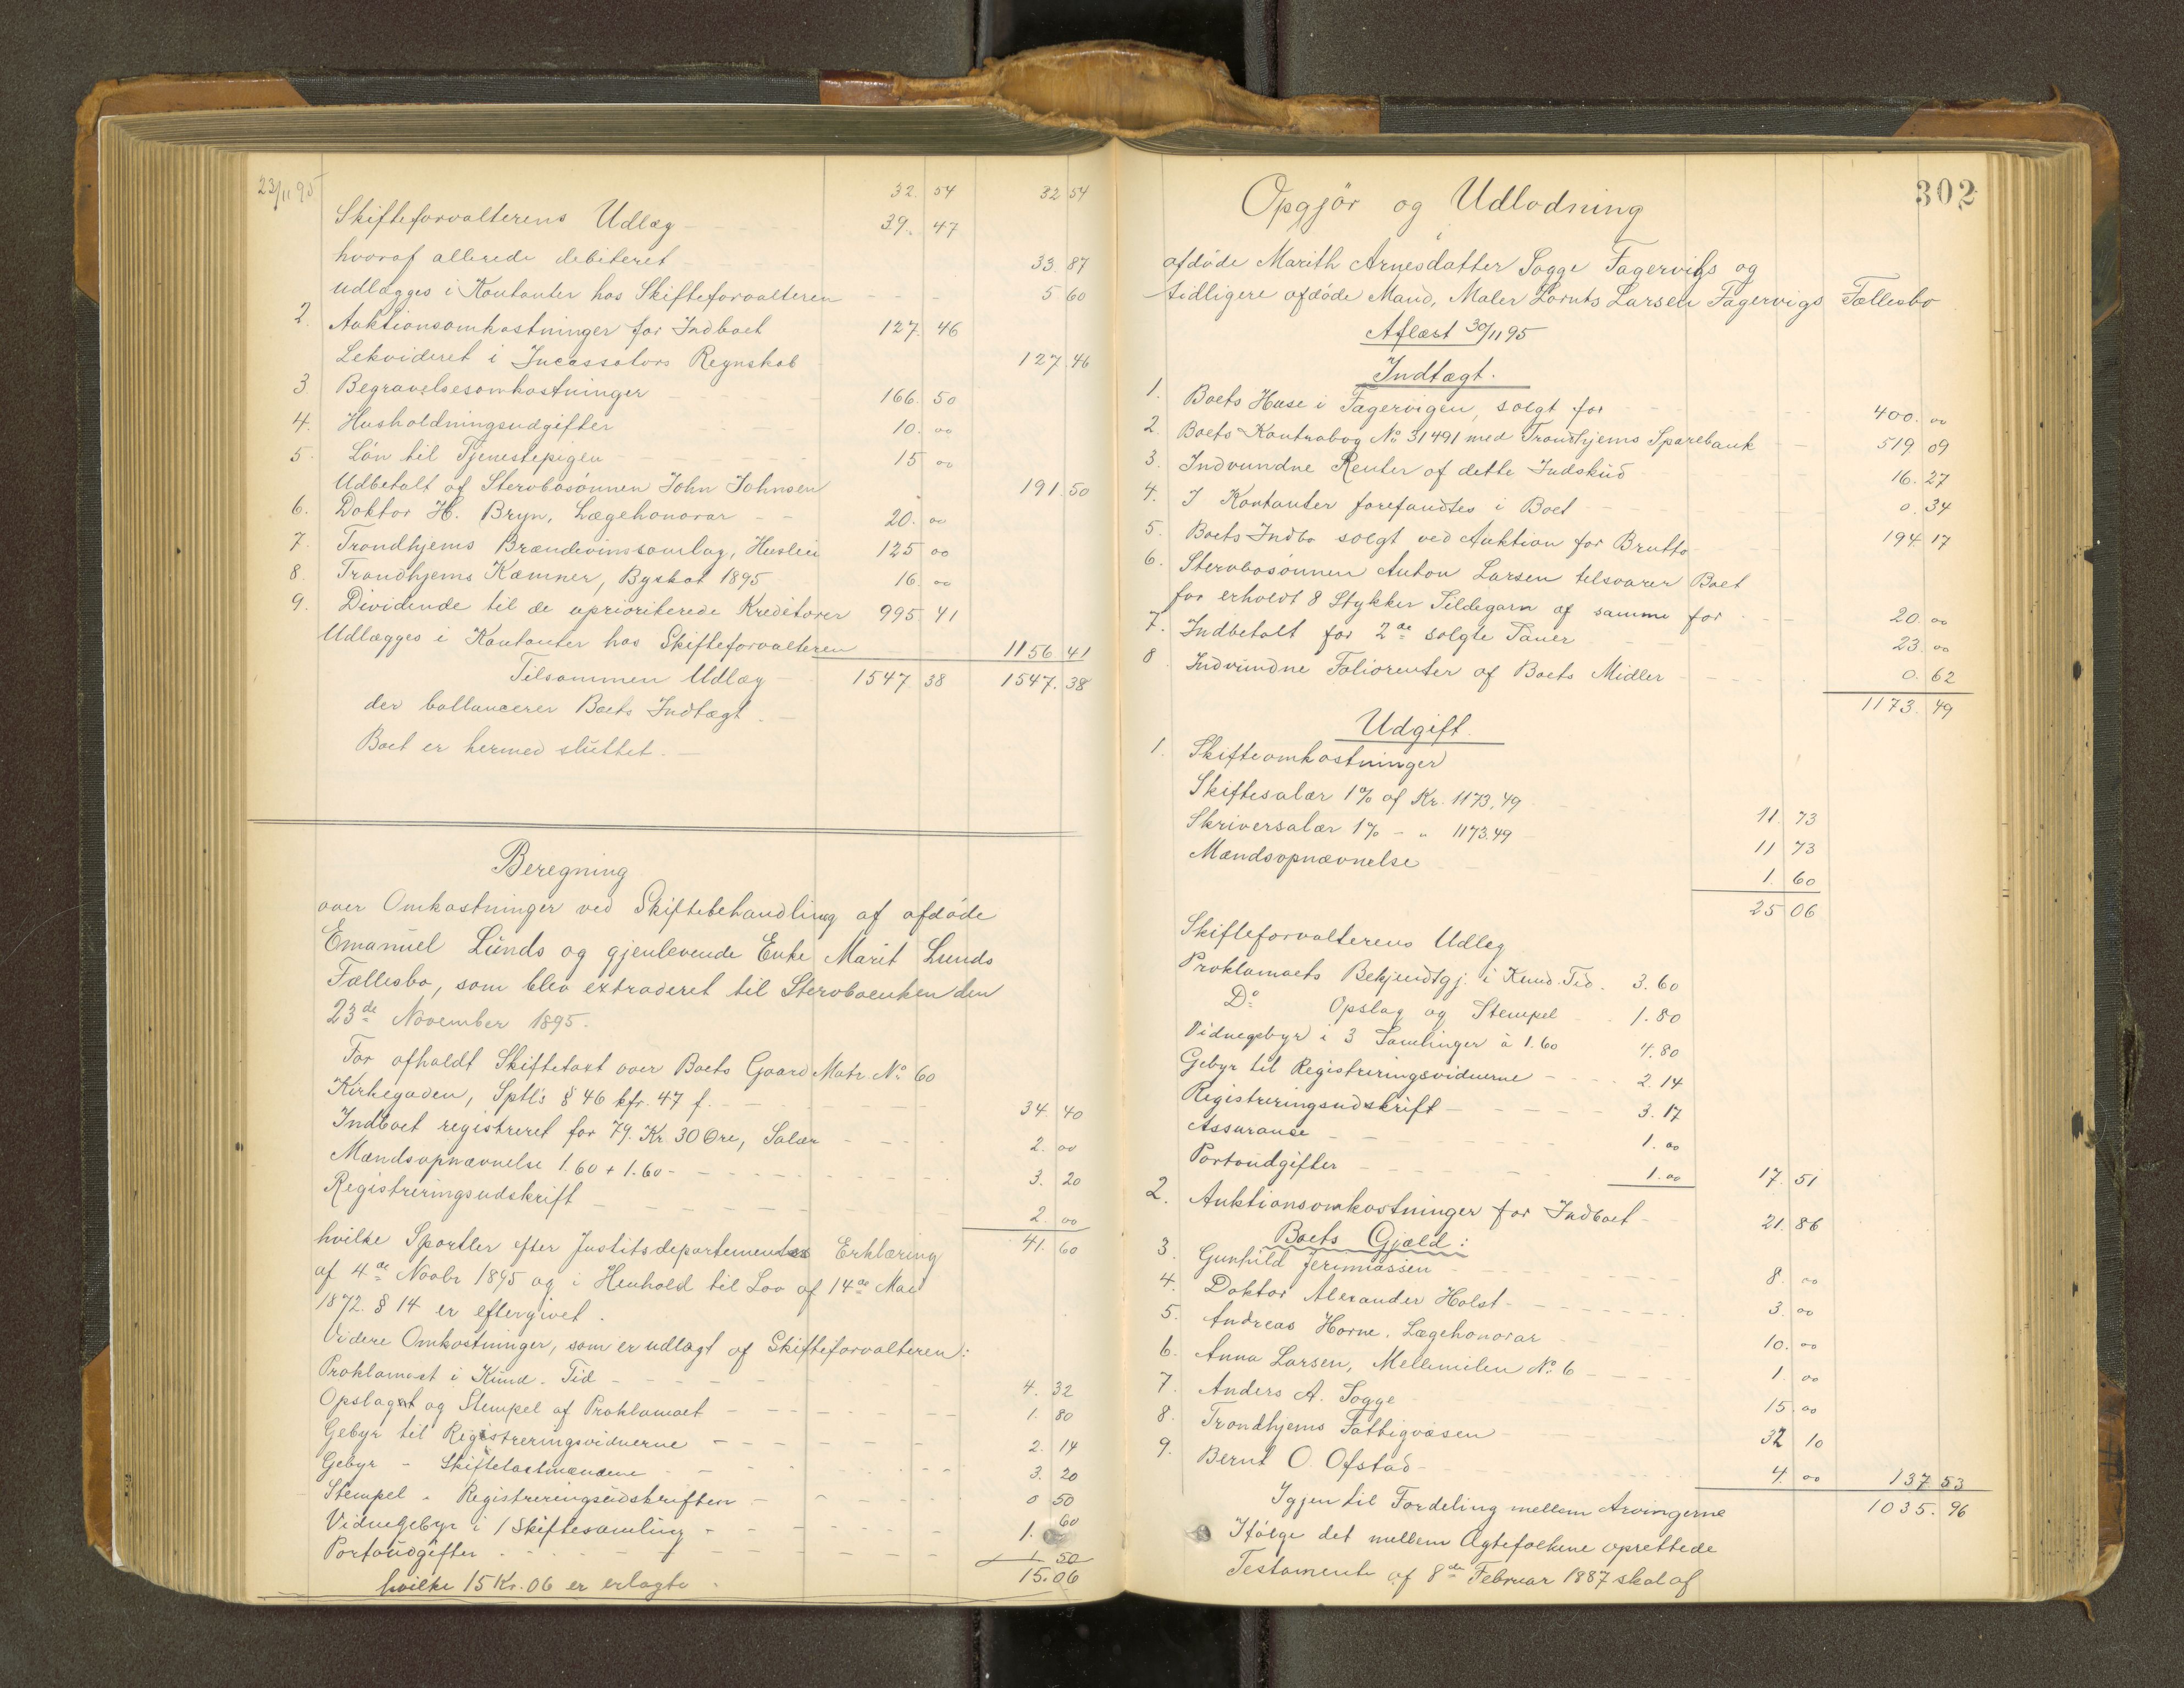 23/11 95
32. 54 32 54
Skifteforvalterens Udlæg 39. 47
hvoraf allerede debiteret 33. 87
udlægges i Kontanter hos Skifteforvalteren 5 60
2. Auktionsomkostninger for Indboet 127. 46
Lekvideret i Incassators Regnskab 127. 46
3 Begravelsesomkostninger 166. 50
4. Husholdningsudgifter 10. 00
5. Løn til Tjenestepigen 15 00
Udbetalt af Stervbosønnen John Johnsen 191. 50
6. Doktor H. Bryn, Lægehonorar 20. 00
7. Trondhjems Brændevinssamlag, Husleie 125 00
8. Trondhjems Kæmner, Byskat 1895 16. 00
9. Dividende til de uprioriterede Kreditorer 995. 41
Udlægges i Kontanter hos Skifteforvalteren 1156 41
Tilsammen Udlæg 1547. 38 1547. 38
der ballancerer Boets Indtægt.
Boet er hermed sluttet.
Beregning
over Omkostninger ved Skiftebehandling af afdøde
Emanuel Lunds og gjenlevende Enke Marit Lunds
Fællesbo, som blev extraderet til Stervboenken den
23de November 1895.
For afholdt Skiftetaxt over Boets Gaard Matr. No 60
Kirkegaden, Sptl's § 46 kfr. 47 f. 34. 40
Indboet registreret for 79. Kr. 30 Øre, Salær 2. 00
Mændsopnævnelse 1.60 + 1.60 3. 20
Registreringsudskrift 2. 00
41. 60
hvilke Sportler efter Justitsdepartementets Erklæring
af 4de Novbr 1895 og i Henhold til Lov af 14de Mai
1872. § 14 er eftergivet.
Videre Omkostninger, som er udlagt af Skifteforvalteren:
Proklamaet i Kund. Tid 4. 32
Opslaget og Stempel af Proklamaet 1. 80
Gebyr til Registreringsvidnerne 2. 14
Gebyr - Skiftetaxtmændene 3. 20
Stempel - Registreringsudskriften 0 50
Vidnegebyr i 1 Skiftesamling 1. 60
Portoudgifter 1 50
hvilke 15 Kr. 06 er erlagte. 15. 06
302
Opgjør og Udlodning
i
afdøde Marith Arnesdatter Sogge Fagervigs og
tidligere afdøde Mand, Maler Lornts Larsen Fagervigs Fællesbo
Aflæst 30/11 95
Indtægt.
1. Boets Huse i Fagervigen, solgt for 400. 00
2. Boets Kontrabog No 31491 med Trondhjems Sparebank 519 09
3. Indvundne Renter af dette Indskud 16. 27
4. I Kontanter forefandtes i Boet 0. 34
5. Boets Indbo solgt ved Auktion for Brutto 194. 17
6. Stervbosønnen Anton Larsen tilsvarer Boet
for erholdt 8 Stykker Sildegarn af samme for 20. 00
7. Indbetalt for 2de solgte Tauer 23. 00
8 Indvundne Foliorenter af Boets Midler 0. 62
1173. 49
Udgift.
1. Skifteomkostninger
Skiftesalær 1% af Kr. 1173.49 11. 73
Skriversalær 1% - " 1173.49 11 73
Mændsopnævnelse 1. 60
25 06
Skifteforvalterens Udlæg
Proklamaets Bekjendtgj. i Kund. Tid. 3. 60
Do Opslag og Stempel 1. 80
Vidnegebyr i 3 Samlinger à 1.60 4. 80
Gebyr til Registreringsvidnerne 2. 14
Registreringsudskrift 3. 17
Assuranse 1. 00
Portoudgifter 1. 00 17. 51
2. Auktionsomkostninger for Indboet 21. 86
Boets Gjæld:
3. Gunhild Jerimiassen 8. 00
4. Doktor Alexander Holst 3. 00
5. Andreas Horne. Lægehonorar 10. 00
6. Anna Larsen, Mellemilen No 6 1. 00
7. Anders A. Sogge 15. 00
8. Trondhjems Fattigvæsen 32 10
9. Bernt O. Ofstad 4. 00 137. 53
Igjen til Fordeling mellem Arvingerne 1035. 96
Ifølge det mellem Ægtefolkene oprettede
Testamente af 8de Februar 1887 skal af